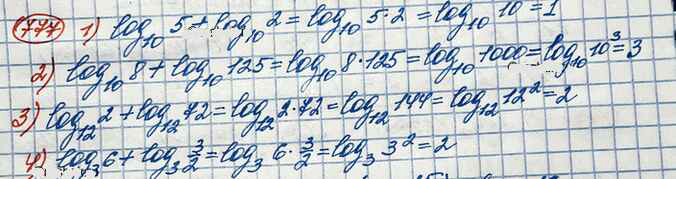 777 1) log₁₀ 5 + log₁₀ 2 = log₁₀ 5·2 = log₁₀ 10 = 1
2) log₁₀ 8 + log₁₀ 125 = log₁₀ 8·125 = log₁₀ 1000 = log₁₀ 10³ = 3
3) log₁₂ 2 + log₁₂ 72 = log₁₂ 2·72 = log₁₂ 144 = log₁₂ 12² = 2
4) log₃ 6 + log₃ 3/2 = log₃ 6·3/2 = log₃ 3² = 2